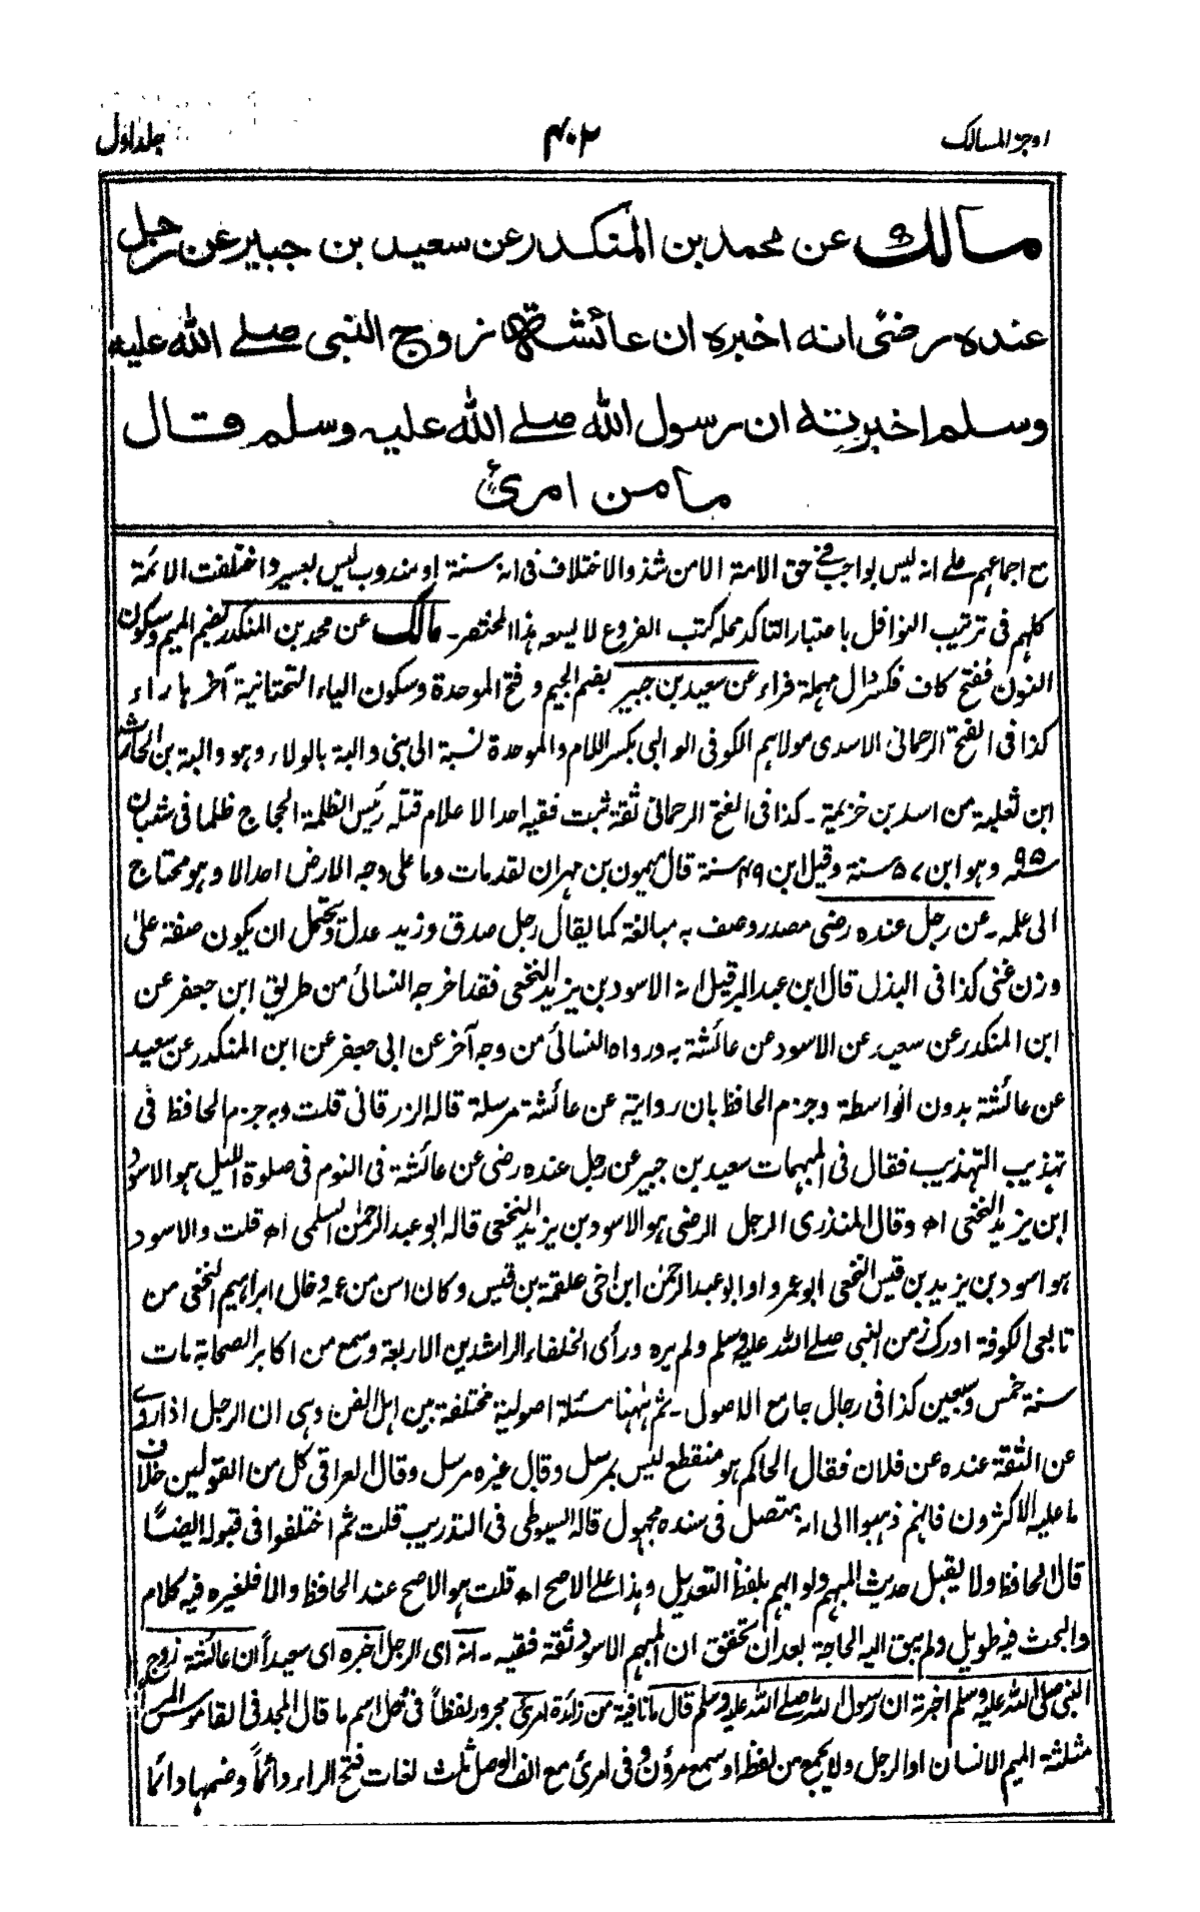 اوجز المسالک
۴۰۲
جلد اول
مالك عن محمد بن المنكدر عن سعيد بن جبير عن رجل
عنده رضىً انه اخبره ان عائشة زوج النبى صلے الله عليه
وسلم اخبرته ان رسول الله صلے الله عليه وسلم قال
ما من امرئ
مع اجماعهم على انه ليس بواجب فى حق الامة الا من شذ والاختلاف فى انه سنة او مندوب ليس بعسير واختلفت الائمة
كلهم فى ترتيب النوافل باعتبار التاكد محله كتب الفروع لا يسعه هذا المختصر۔ مالك عن محمد بن المنكدر بضم الميم وسكون
النون ففتح كاف فكسر دال مهملة فراء عن سعيد بن جبير بضم الجيم وفتح الموحدة وسكون الياء التحتانية آخرها راء
كذا فى الفتح الرحمانى الاسدى مولاهم الكوفى الوالبى بكسر اللام والموحدة نسبة الى بنى والبة بالولاء وهو والبة بن الحارث
ابن ثعلبة من اسد بن خزيمة۔ كذا فى الفتح الرحمانى ثقة ثبت فقيه احد الاعلام قتله رئيس الظلمة الحجاج ظلما فى شعبان
سنة ۹۵ وهو ابن ۵۷ سنة وقيل ابن ۴۹ سنة قال ميمون بن مهران لقد مات وما على وجه الارض احد الا وهو محتاج
الى علمه۔ عن رجل عنده رضى مصدر وصف به مبالغة كما يقال رجل صدق وزيد عدل ويحتمل ان يكون صفة على
وزن غنى كذا فى البذل قال ابن عبد البر قيل انه الاسود بن يزيد النخعى فقد اخرجه النسائى من طريق ابن جعفر عن
ابن المنكدر عن سعيد عن الاسود عن عائشة به ورواه النسائى من وجه آخر عن ابى جعفر عن ابن المنكدر عن سعيد
عن عائشة بدون الواسطة وجزم الحافظ بان روايته عن عائشة مرسلة قاله الزرقانى قلت وبه جزم الحافظ فى
تهذيب التهذيب فقال فى المبهمات سعيد بن جبير عن رجل عنده رضى عن عائشة فى النوم فى صلوة الليل هو الاسود
ابن يزيد النخعى اھ وقال المنذرى الرجل الرضى هو الاسود بن يزيد النخعى قاله ابو عبد الرحمٰن السلمى اھ قلت والاسود
هو اسود بن يزيد بن قيس النخعى ابو عمرو او ابو عبد الرحمٰن ابن اخى علقمة بن قيس وكان اسن من عمه وخال ابراهيم النخعى من
تابعى الكوفة ادرك زمن النبى صلے الله عليه وسلم ولم يره ورأى الخلفاء الراشدين الاربعة وسمع من اكابر الصحابة مات
سنة خمس وسبعين كذا فى رجال جامع الاصول۔ ثم ههنا مسئلة اصولية مختلفة بين اهل الفن وهى ان الرجل اذا روى
عن الثقة عنده عن فلان فقال الحاكم هو منقطع ليس بمرسل وقال غيره مرسل وقال العراقى كل من القولين خلاف
ما عليه الاكثرون فانهم ذهبوا الى انه متصل فى سنده مجهول قاله السيوطى فى التدريب قلت ثم اختلفوا فى قبوله ايضًا
قال الحافظ ولا يقبل حديث المبهم ولو ابهم بلفظ التعديل وهذا على الاصح اھ قلت هو الاصح عند الحافظ والا فلغيره فيه كلام
والبحث فيه طويل ولم يبق اليه الحاجة بعد ان تحقق ان المبهم الاسود ثقة فقيه۔ انه اى الرجل اخبره اى سعيداً ان عائشة زوج
النبى صلى الله عليه وسلم اخبرته ان رسول الله صلى الله عليه وسلم قال ما نافية من زائدة امرئ مجرور لفظاً فى محل اسم ما قال المجد فى القاموس المرأ
مثلثة الميم الانسان او الرجل ولا يجمع من لفظه او سمع مرؤن وفى امرئ مع الف الوصل ثلث لغات فتح الراء دائماً وضمها دائما